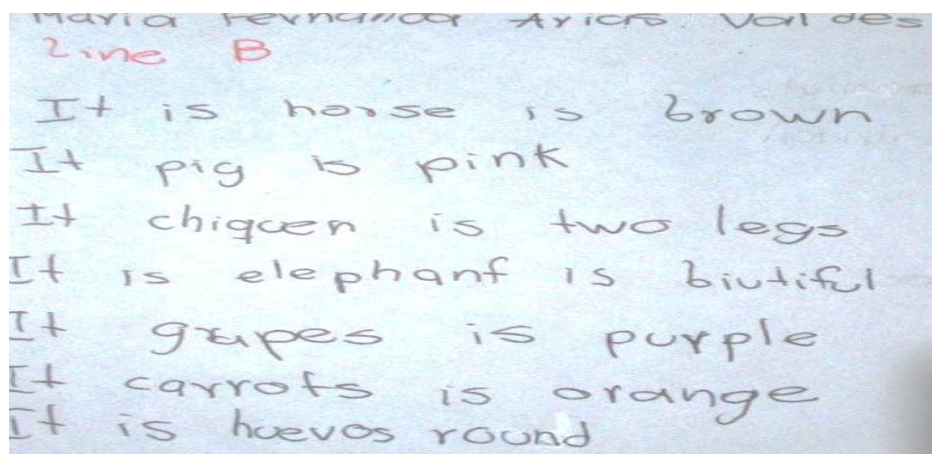 Maria Fernanda Arias Valdes
Line B
It is horse is brown
It pig is pink
It chiqcen is two legs
It is elephant is biutiful
It grapes is purple
It carrots is orange
It is huevos round